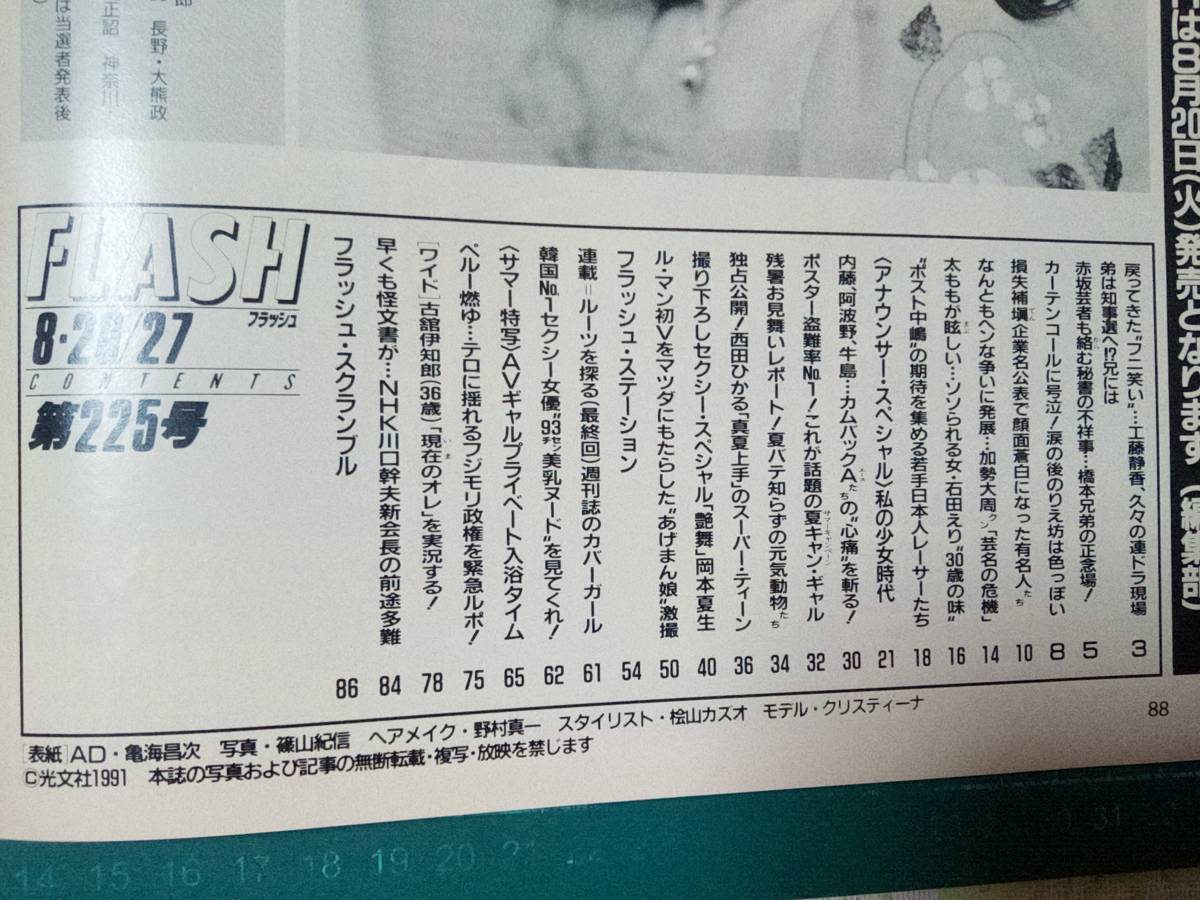 郎
長野・大熊政
正詔 神奈川・
は当選者発表後
は8月20日(火)発売となります (編集部)
FLASH
フラッシュ
8・20/27
CONTENTS
第225号
戻ってきた“フニ笑い”…工藤静香、久々の連ドラ現場 3
弟は知事選へ!?兄には
赤坂芸者も絡む秘書の不祥事…橋本兄弟の正念場! 5
カーテンコールに号泣!涙の後のりえ坊は色っぽい 8
損失補塡企業名公表で顔面蒼白になった有名人たち 10
なんともヘンな争いに発展…加勢大周クン「芸名の危機」 14
太ももが眩しい…ソソられる女・石田えり“30歳の味” 16
“ポスト中嶋”の期待を集める若手日本人レーサーたち 18
〈アナウンサー・スペシャル〉私の少女時代 21
内藤、阿波野、牛島…カムバックAたちの“心痛”を斬る! 30
ポスター盗難率No.1!これが話題の夏キャン・ギャル 32
残暑お見舞いレポート!夏バテ知らずの元気動物たち 34
独占公開!西田ひかる「真夏上手」のスーパー・ティーン 36
撮り下ろしセクシー・スペシャル「艶舞」岡本夏生 40
ル・マン初Vをマツダにもたらした“あげまん娘”激撮 50
フラッシュ・ステーション 54
連載=ルーツを探る(最終回)週刊誌のカバーガール 61
韓国No.1セクシー女優“93センチ美乳ヌード”を見てくれ! 62
〈サマー特写〉AVギャルプライベート入浴タイム 65
ペルー燃ゆ…テロに揺れるフジモリ政権を緊急ルポ! 75
[ワイド]古舘伊知郎(36歳)「現在のオレ」を実況する! 78
早くも怪文書が…NHK川口幹夫新会長の前途多難 84
フラッシュ・スクランブル 86
88
[表紙]AD・亀海昌次 写真・篠山紀信 ヘアメイク・野村真一 スタイリスト・桧山カズオ モデル・クリスティーナ
©光文社1991 本誌の写真および記事の無断転載・複写・放映を禁じます
14 15 16 17 18 19 20 21 22
31